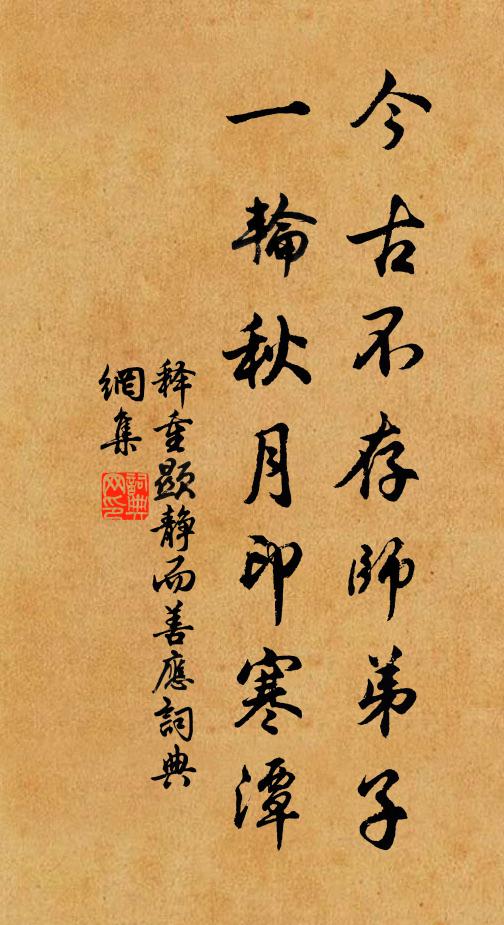 今古不存師弟子
一輪秋月印寒潭
释重顯静而善應詞典
網集
詞典
网印